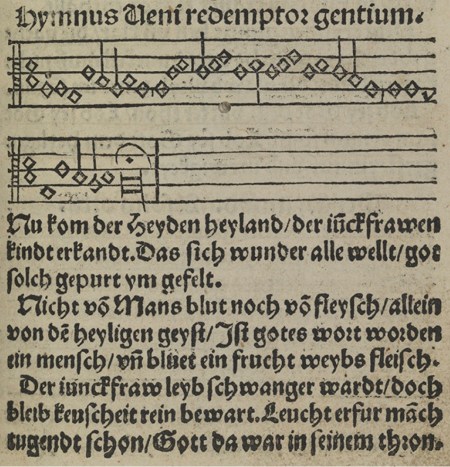 Hymnus Veni redemptor gentium.
Nu kom der Heyden heyland/der iũckfrawen
kindt erkandt. Das sich wunder alle wellt/got
solch gepurt ym gefelt.
Nicht võ Mans blut noch võ fleysch/allein
von dẽ heyligen geyst/Ist gotes wort worden
ein mensch/vñ bluet ein frucht weybs fleisch.
Der iunckfraw leyb schwanger wardt/doch
bleib keuscheit rein bewart. Leucht erfur mãch
tugendt schon/Gott da war in seinem thron.